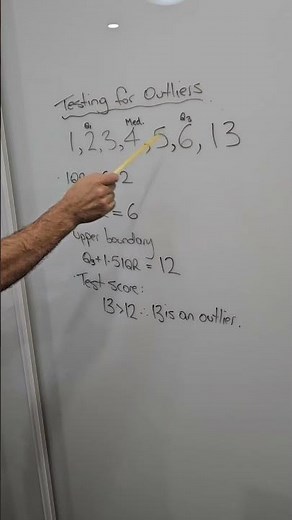 Testing for Outliers
Q1 Med. Q3
1, 2, 3, 4, 5, 6, 13
2
= 6
Upper boundary
Q3+1.5IQR = 12
Test score:
13>12 ∴ 13 is an outlier.